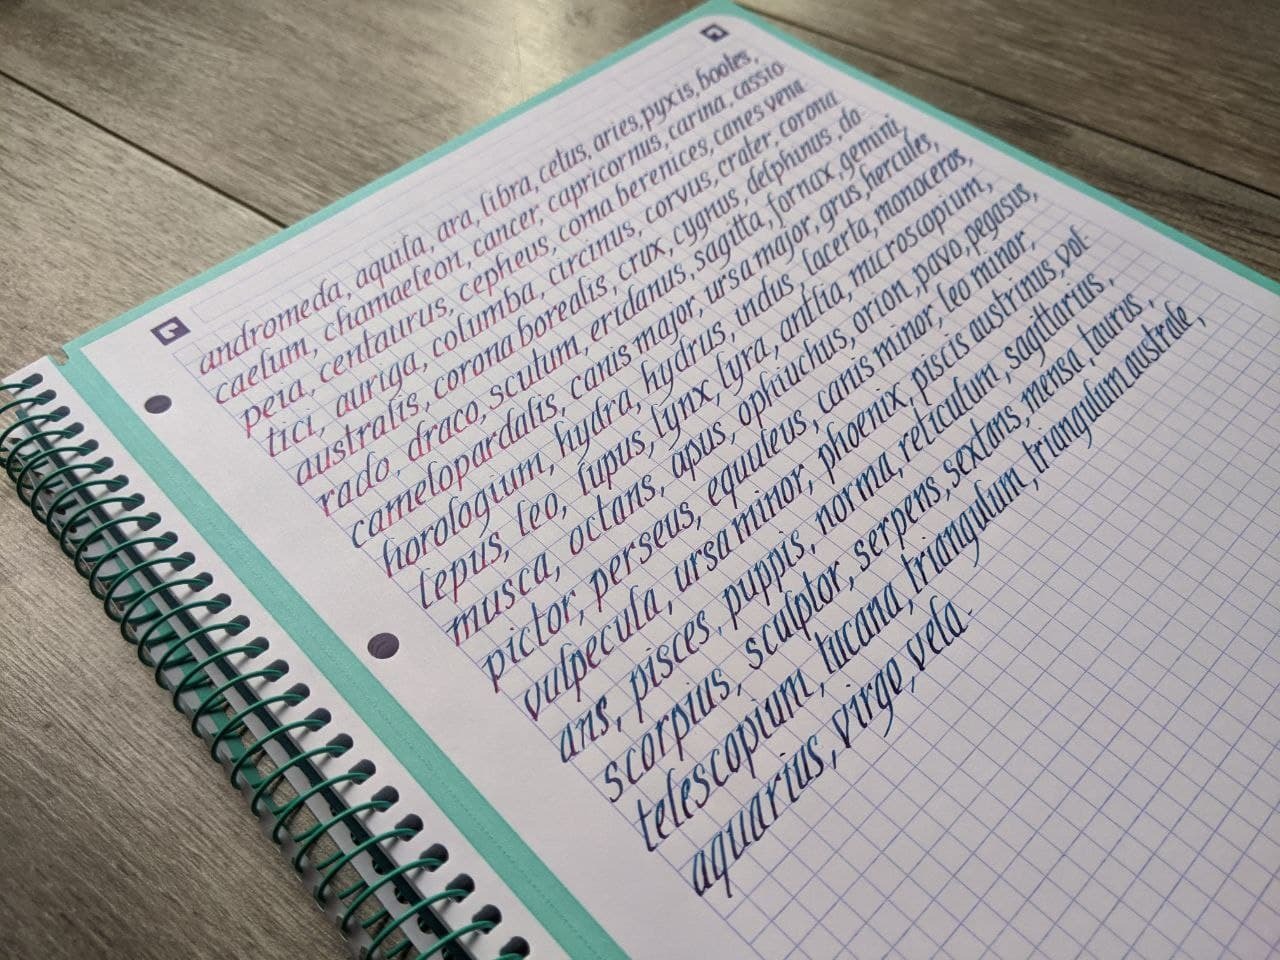 andromeda, aquila, ara, libra, cetus, aries, pyxis, bootes,
caelum, chamaeleon, cancer, capricornus, carina, cassio
peia, centaurus, cepheus, coma berenices, canes vena
tici, auriga, columba, circinus, corvus, crater, corona
australis, corona borealis, crux, cygnus, delphinus, do
rado, draco, scutum, eridanus, sagitta, fornax, gemini,
camelopardalis, canis major, ursa major, grus, hercules,
horologium, hydra, hydrus, indus, lacerta, monoceros,
lepus, leo, lupus, lynx, lyra, antlia, microscopium,
musca, octans, apus, ophiuchus, orion, pavo, pegasus,
pictor, perseus, equuleus, canis minor, leo minor,
vulpecula, ursa minor, phoenix, piscis austrinus, vol
ans, pisces, puppis, norma, reticulum, sagittarius,
scorpius, sculptor, serpens, sextans, mensa, taurus,
telescopium, tucana, triangulum, triangulum australe,
aquarius, virgo, vela.